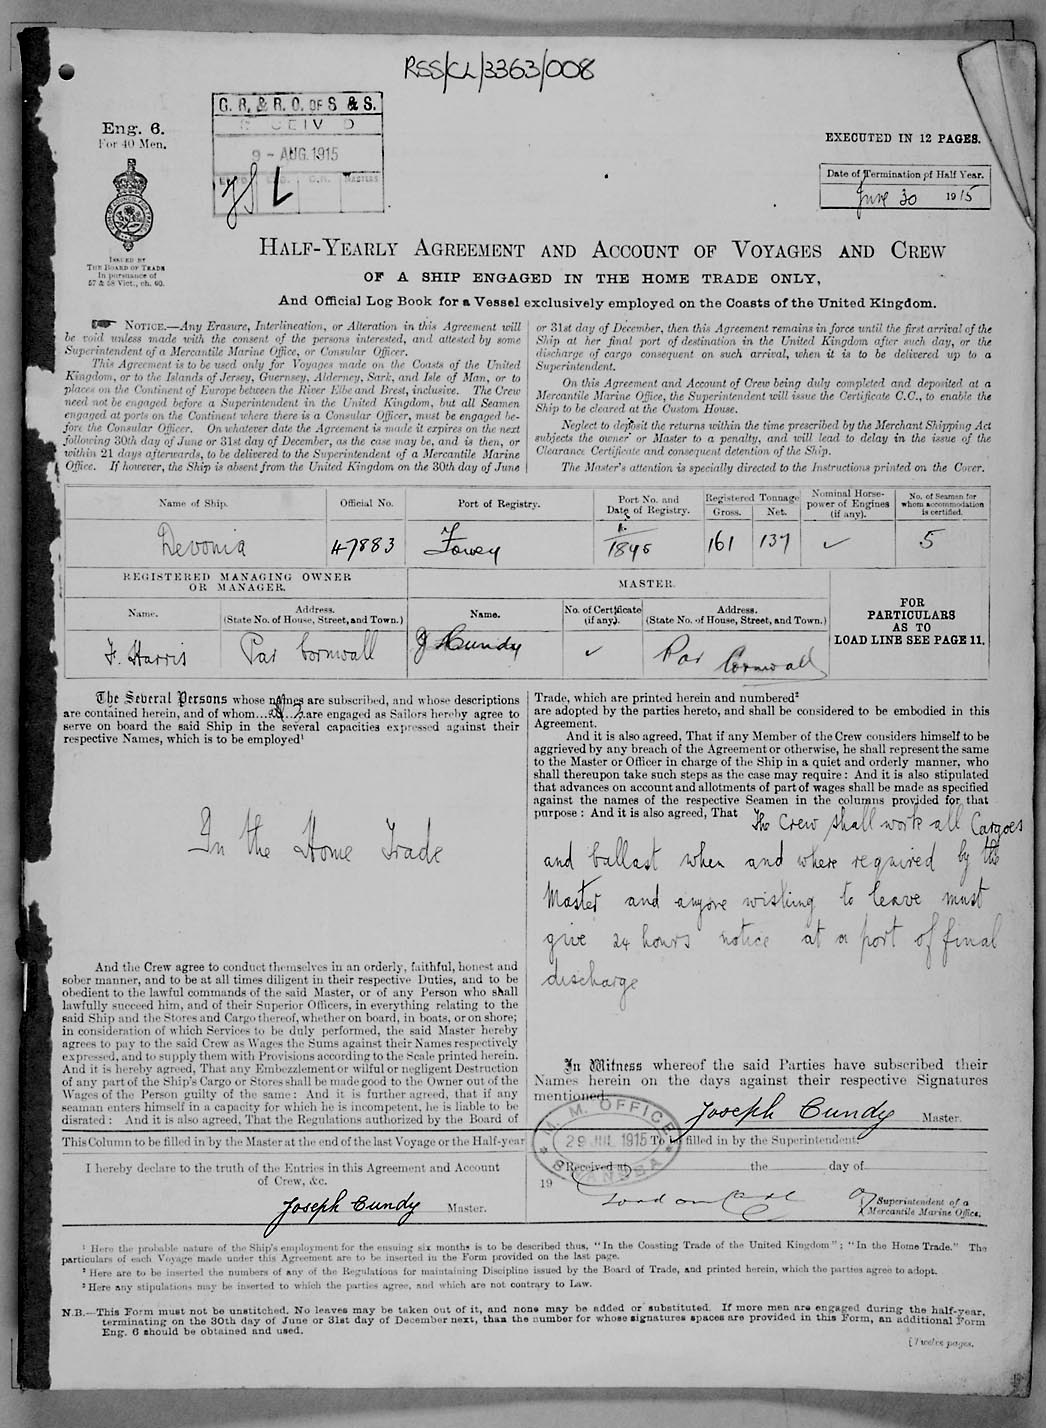 RSS/CL/3363/008
G. R. & R. O. OF S & S.
9 - AUG. 1915
Eng. 6.
For 40 Men.
EXECUTED IN 12 PAGES.
Date of Termination of Half Year.
June 30 1915
ISSUED BY
THE BOARD OF TRADE
In pursuance of
57 & 58 Vict., ch. 60.
HALF-YEARLY AGREEMENT AND ACCOUNT OF VOYAGES AND CREW
OF A SHIP ENGAGED IN THE HOME TRADE ONLY,
And Official Log Book for a Vessel exclusively employed on the Coasts of the United Kingdom.
NOTICE.—Any Erasure, Interlineation, or Alteration in this Agreement will
be void unless made with the consent of the persons interested, and attested by some
Superintendent of a Mercantile Marine Office, or Consular Officer.
This Agreement is to be used only for Voyages made on the Coasts of the United
Kingdom, or to the Islands of Jersey, Guernsey, Alderney, Sark, and Isle of Man, or to
places on the Continent of Europe between the River Elbe and Brest, inclusive. The Crew
need not be engaged before a Superintendent in the United Kingdom, but all Seamen
engaged at ports on the Continent where there is a Consular Officer, must be engaged be-
fore the Consular Officer. On whatever date the Agreement is made it expires on the next
following 30th day of June or 31st day of December, as the case may be, and is then, or
within 21 days afterwards, to be delivered to the Superintendent of a Mercantile Marine
Office. If however, the Ship is absent from the United Kingdom on the 30th day of June
or 31st day of December, then this Agreement remains in force until the first arrival of the
Ship at her final port of destination in the United Kingdom after such day, or the
discharge of cargo consequent on such arrival, when it is to be delivered up to a
Superintendent.
On this Agreement and Account of Crew being duly completed and deposited at a
Mercantile Marine Office, the Superintendent will issue the Certificate C.C., to enable the
Ship to be cleared at the Custom House.
Neglect to deposit the returns within the time prescribed by the Merchant Shipping Act
subjects the owner or Master to a penalty, and will lead to delay in the issue of the
Clearance Certificate and consequent detention of the Ship.
The Master's attention is specially directed to the Instructions printed on the Cover.
Name of Ship. Official No. Port of Registry. Port No. and Date of Registry. Registered Tonnage Gross. Net. Nominal Horse-power of Engines (if any). No. of Seamen for whom accommodation is certified.
Devonia 47883 Fowey 161 137 5
REGISTERED MANAGING OWNER OR MANAGER. MASTER.
Name. Address. (State No. of House, Street, and Town.) Name. No. of Certificate (if any). Address. (State No. of House, Street, and Town.)
FOR
PARTICULARS
AS TO
LOAD LINE SEE PAGE 11.
F. Harris Par Cornwall J Cundy Par Cornwall
The Several Persons whose names are subscribed, and whose descriptions
are contained herein, and of whom are engaged as Sailors hereby agree to
serve on board the said Ship in the several capacities expressed against their
respective Names, which is to be employed¹
In the Home Trade
And the Crew agree to conduct themselves in an orderly, faithful, honest and
sober manner, and to be at all times diligent in their respective Duties, and to be
obedient to the lawful commands of the said Master, or of any Person who shall
lawfully succeed him, and of their Superior Officers, in everything relating to the
said Ship and the Stores and Cargo thereof, whether on board, in boats, or on shore;
in consideration of which Services to be duly performed, the said Master hereby
agrees to pay to the said Crew as Wages the Sums against their Names respectively
expressed, and to supply them with Provisions according to the Scale printed herein.
And it is hereby agreed, That any Embezzlement or wilful or negligent Destruction
of any part of the Ship's Cargo or Stores shall be made good to the Owner out of the
Wages of the Person guilty of the same: And it is further agreed, that if any
seaman enters himself in a capacity for which he is incompetent, he is liable to be
disrated: And it is also agreed, That the Regulations authorized by the Board of
Trade, which are printed herein and numbered²
are adopted by the parties hereto, and shall be considered to be embodied in this
Agreement.
And it is also agreed, That if any Member of the Crew considers himself to be
aggrieved by any breach of the Agreement or otherwise, he shall represent the same
to the Master or Officer in charge of the Ship in a quiet and orderly manner, who
shall thereupon take such steps as the case may require: And it is also stipulated
that advances on account and allotments of part of wages shall be made as specified
against the names of the respective Seamen in the columns provided for that
purpose: And it is also agreed, That The Crew shall work all Cargoes
and ballast when and where required by the
Master and anyone wishing to leave must
give 24 hours notice at a port of final
discharge
In Witness whereof the said Parties have subscribed their
Names herein on the days against their respective Signatures
mentioned.
Joseph Cundy Master.
This Column to be filled in by the Master at the end of the last Voyage or the Half-year
I hereby declare to the truth of the Entries in this Agreement and Account
of Crew, &c.
Joseph Cundy Master.
M. M. OFFICE
29 JUL 1915
SWANSEA
To be filled in by the Superintendent.
Received at the day of
19
Superintendent of a
Mercantile Marine Office.
¹ Here the probable nature of the Ship's employment for the ensuing six months is to be described thus, "In the Coasting Trade of the United Kingdom"; "In the Home Trade." The
particulars of each Voyage made under this Agreement are to be inserted in the Form provided on the last page.
² Here are to be inserted the numbers of any of the Regulations for maintaining Discipline issued by the Board of Trade, and printed herein, which the parties agree to adopt.
³ Here any stipulations may be inserted to which the parties agree, and which are not contrary to Law.
N.B.—This Form must not be unstitched. No leaves may be taken out of it, and none may be added or substituted. If more men are engaged during the half-year,
terminating on the 30th day of June or 31st day of December next, than the number for whose signatures spaces are provided in this Form, an additional Form
Eng. 6 should be obtained and used.
[Twelve pages.